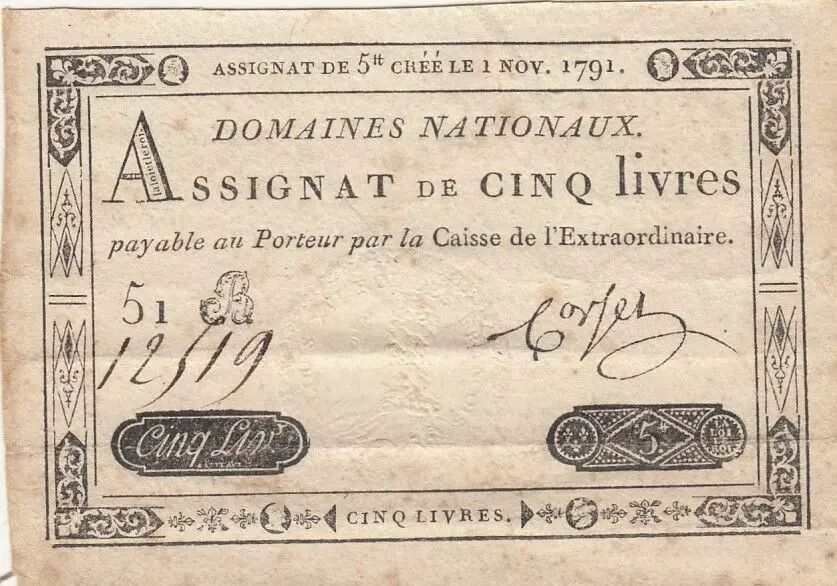 ASSIGNAT DE 5tt CRÉÉ LE 1 NOV. 1791.
DOMAINES NATIONAUX.
ASSIGNAT DE CINQ livres
payable au Porteur par la Caisse de l'Extraordinaire.
51 R
12519
Corsel
Cinq Liv.
5tt
LA LOI
ROI
CINQ LIVRES.